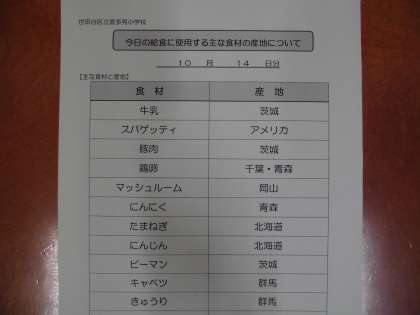 世田谷区立喜多見小学校
今日の給食に使用する主な食材の産地について
10 月 14 日分
【主な食材と産地】
食 材 産 地
牛乳 茨城
スパゲッティ アメリカ
豚肉 茨城
鶏卵 千葉・青森
マッシュルーム 岡山
にんにく 青森
たまねぎ 北海道
にんじん 北海道
ピーマン 茨城
キャベツ 群馬
きゅうり 群馬